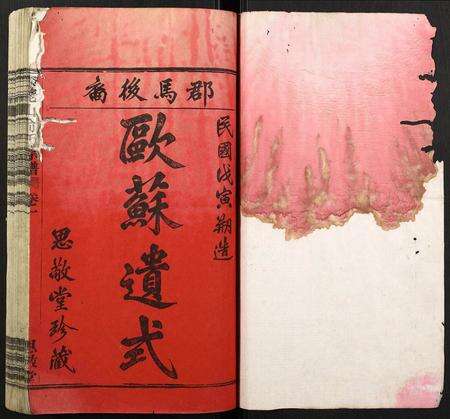 郡馬後裔
民國戊寅朔造
歐蘇遺式
思敬堂珍藏